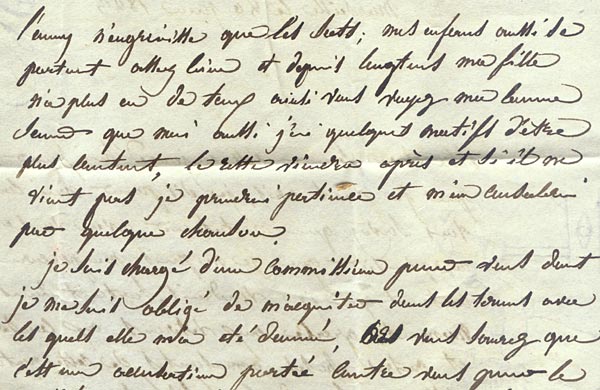 que les Sots; mes enfans aussi se
portent assez bien et depuis longtems ma fille
n'a plus eu de ainsi vous voyez ma bonne
que moi aussi j'ai quelques motifs d'être
plus content, le reste viendra après et si il ne
vient pas je prendrai patience et m'en consolerai
par quelque chanson.
je suis chargé d'une commission pour vous dont
je me suis obligé de m'acquiter dans les termes avec
les quels elle m'a été donnée, vous saurez que
c'est une accusation portée contre vous pour le